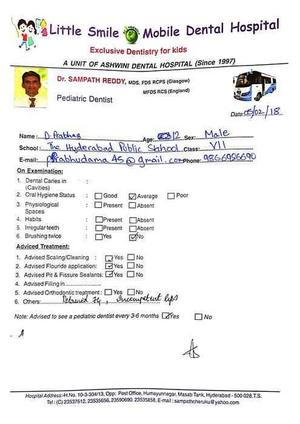 Little Smile Mobile Dental Hospital
Exclusive Dentistry for kids
A UNIT OF ASHWINI DENTAL HOSPITAL (Since 1997)
Dr. SAMPATH REDDY, MDS, FDS RCPS (Glasgow)
MFDS RCS (England)
Pediatric Dentist
Date: 05/02/18
Name: D. Age: 12 Sex: Male
School: The Hyderabad Public School Class: VII
E-mail: Prabhudama45@gmail.com Phone: 9866956690
On Examination:
1. Dental Caries in :
(Cavities)
2. Oral Hygiene Status : Good Average Poor
3. Physiological : Present Absent
Spaces
4. Habits. : Present Absent
5. Irregular teeth : Present Absent
6. Brushing twice : Yes No
Adviced Treatment:
1. Advised Scaling/Cleaning : Yes No
2. Advised Flouride application: Yes No
3. Advised Pit & Fissure Sealants: Yes No
4. Advised Filling in
5. Advised Orthodontic treatment: Yes No
6. Others: incompetent lips
Note: Advised to see a pediatric dentist every 3-6 months Yes No
Hospital Address: H.No. 10-3-304/13, Opp. Post Office, Humayunnagar, Masab Tank, Hyderabad - 500 028.T.S.
Tel: (C) 23537612, 23535656, 23590690, 23535858. E-mail: sampathcheruku@yahoo.com